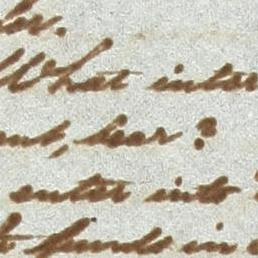 What inter
bear?
enter into
funds in